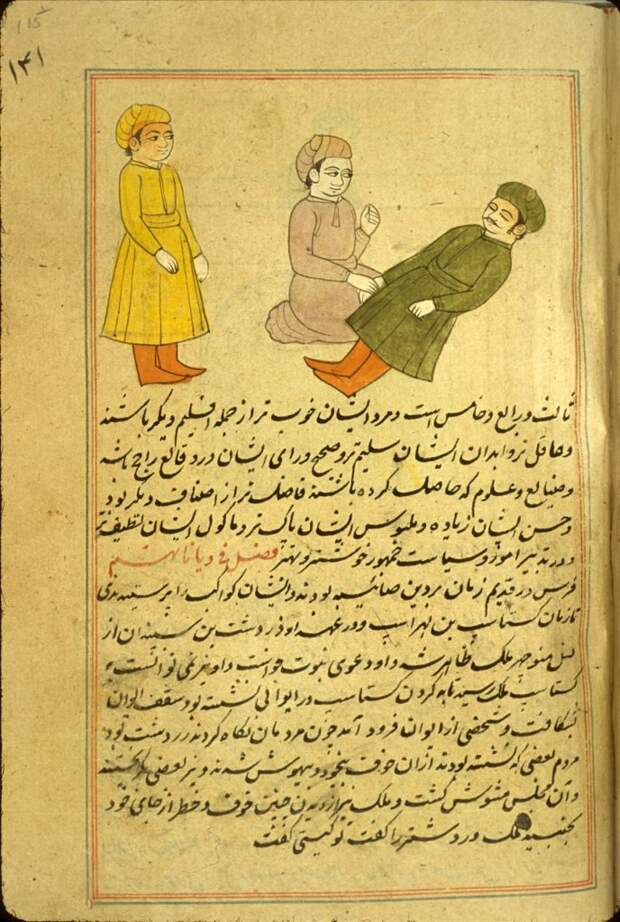 115
۱۴۱
ثالث ورابع وخامس است ومردم ایشان خوب تر از جمله اقلیم دیگر باشند
وعاقل تر وابدان ایشان سلیم تر وصحیح ورای ایشان در وقایع راجح باشد
وصنایع وعلوم که حاصل کرده باشند فاضلتر از اصناف دیگر بود
وحسن ایشان زیاده وملبوس ایشان پاک تر وماکول ایشان لطیف تر
ودر تدبیر امور وسیاست جمهور خوشتر وبهتر فصل فی دیاناتهم
فرس در قدیم زمان بر دین صابئیه بودند وایشان کواکب را پرستیدندی
تا زمان گشتاسب بن لهراسب ودر عهد او زردشت بن از
نسل منوچهر ملک ظاهر شد واو دعوی نبوت خواست داو نمی توانست
گشتاسب ملک رسید تا گاه کردن گشتاسب در ایوانی نشسته بود وسقف ایوان
بشکافت وشخصی از ایوان فرود آمد چون مردمان نگاه کردند زردشت بود
مردم بعضی که نشسته بودند از آن خوف بیخود وبیهوش شدند وبعضی بگریختند
وآن مجلس مشوش گشت وملک نیز از چنین خوف وخطر از جای خود
بجنبید ملک زردشت را گفت تو کیستی گفت